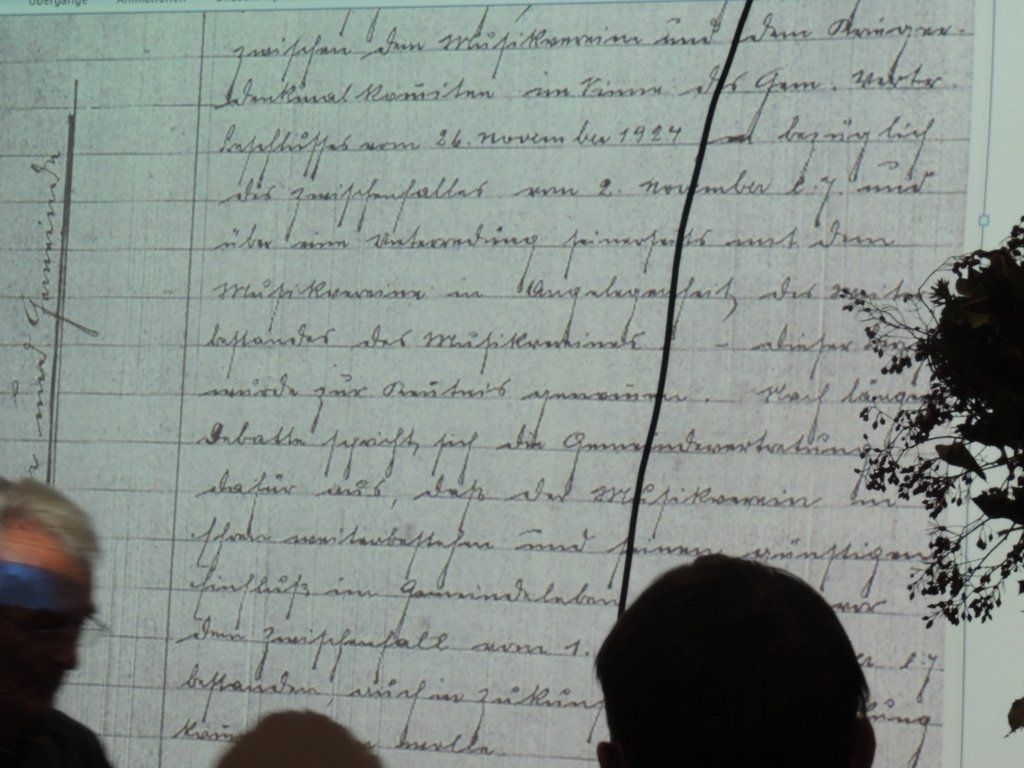 Übergänge Animationen
zwischen dem Musikvereine und dem Krieger-
denkmalkomiteen im Sinne des Gem. Vertr.
Beschlusses vom 26. November 1924 bezüglich
des Zwischenfalles vom 2. November l. J. und
über eine Unterredung seinerseits mit dem
Musikvereine in Angelegenheit des
bestandes des Musikvereines - dieser
wurde zur Kentnis genommen. Nach länger
Debatte spricht sich die Gemeindevertretung
dafür aus, daß der Musikverein in
Ehren weiterbestehen und seinen günstigen
Einfluß im Gemeindeleben vor
dem Zwischenfall vom 1. l. J.
bestanden, auch in Zukun
wolle.
und Gemeinde